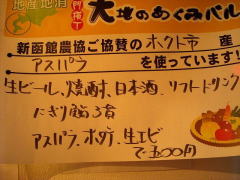 地産地消 大地のめぐみバル
新函館農協ご協賛の ホクト市 産
アスパラ を使っています!
生ビール、焼酎、日本酒、ソフトドリンク
にぎり鮨3貫
アスパラ、ホタテ、生エビ
で